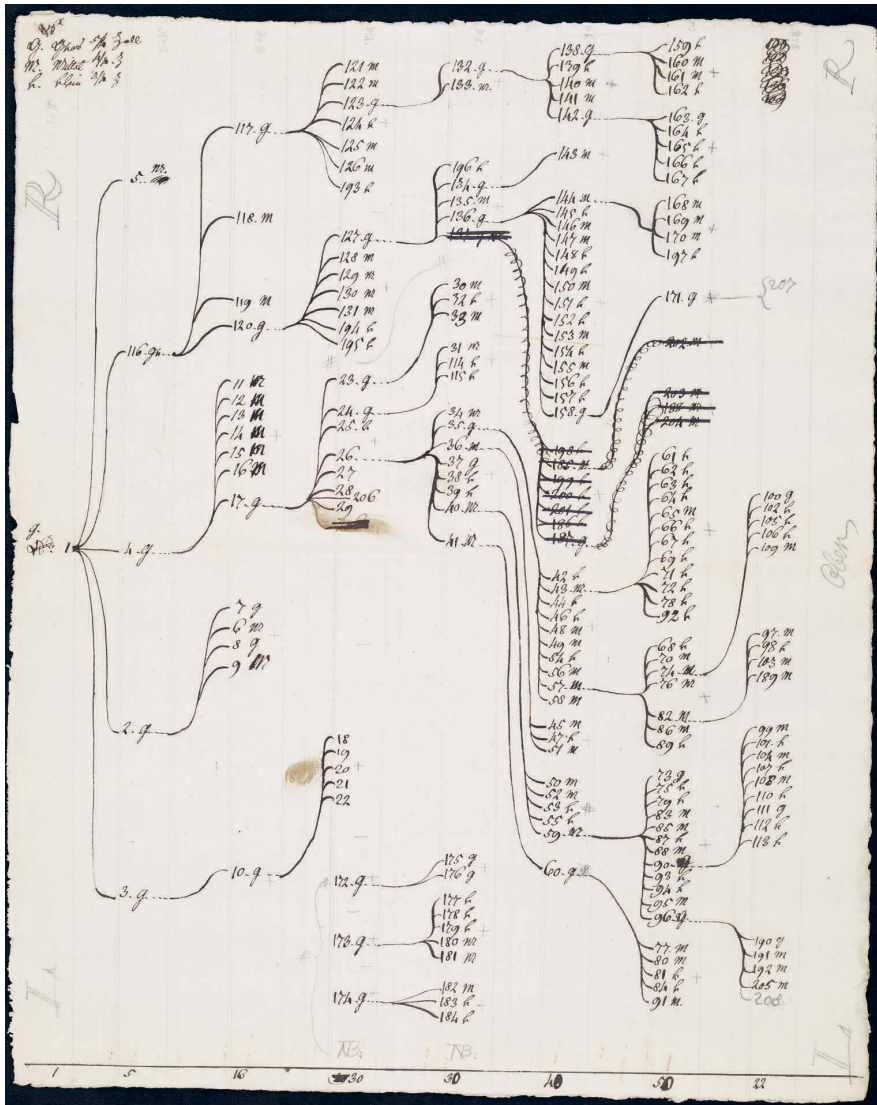 G. Gros 5/10 Zoll
M. Mittel 4/10 Z
k. klein 3/10 Z
R
R
g.
1
5. m.
116. gr.
4. g
2. g
3. g
117. g
118. m
119 m
120. g
11 m
12 m
13 m
14 m
15 m
16 m
17. g
7 g
6 m
8 g
9 m
10. g
121 m
122 m
123. g
124 k
125 m
126 m
193 k
127. g
128 m
129 m
130 m
131 m
194 k
195 k
#
23. g
24. g
25. k
26
27
28 206
29
18
19
20
21
22
172. g
173. g
174. g
#
NB:
132. g
133. m.
196 k
134. g
135. m
136. g
#
30 m
32 k
33 m
31 m
114 k
115 k
34 m
35. g
36. m
37 g
38 k
39 k
40. m
41. m
175 g
176 g
177 k
178 k
179 k
180 m
181 m
182 m
183 k
184 k
NB:
138. g
139 k
140 m
141 m
142. g
143 m
144. m
145 k
146 m
147 m
148 k
149 k
150 m
151 k
152 k
153 m
154 k
155 m
156 k
157 k
158. g
198 k
185. m
199 k
200 k
201 k
186 k
187. g
42 k
43. m
44 k
46 k
48 m
49 m
54 k
56 m
57. m
58 m
45 m
47 k
51 m
50 m
52 m
53 k
55 k
59. m
#
60. g
159 k
160 m
161 m
162 k
163. g
164 k
165 k
166 k
167 k
168 m
169 m
170 m
197 k
171. g
207
202 m
203 m
188 m
204 m
61 k
62 k
63 k
64 k
65 m
66 k
67 k
69 k
71 k
72 k
78 k
92 k
68 k
70 m
74. m
76 m
82 m
86 m
89 k
73 g
75 k
79 k
83 m
85 m
87 k
88 m
90
93 k
94 k
95 m
96. g
77. m
80 m
81 k
84 k
91 m.
100 g
102 k
105 k
106 k
109 m
97. m
98 k
103 m
189 m
99 m
101. k
104 m
107. k
108 m
110 k
111 g
112 k
113 k
190 g
191 m
192 m
205 m
208
Oben
L
L
1 5 16 30 30 40 50 22